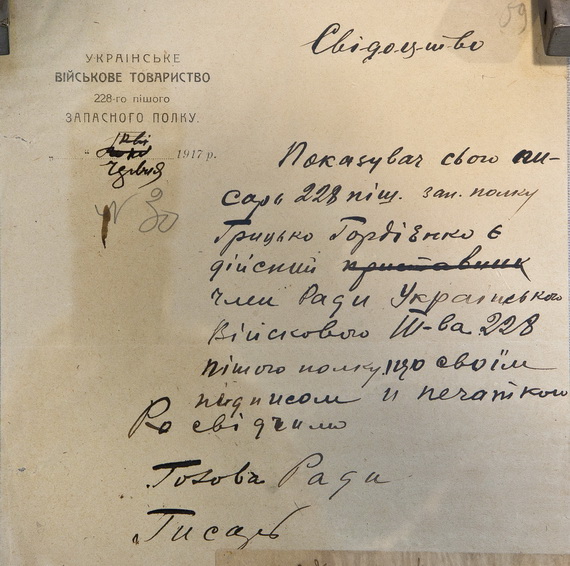 59
Свідоцтво
УКРАЇНСЬКЕ
ВІЙСЬКОВЕ ТОВАРИСТВО
228-го пішого
ЗАПАСНОГО ПОЛКУ.
1917 р.
Червня
Показувач сього пи-
сарь 228 піш. зап. полку
Грицько Гордієнко є
дійсний приставник
член Ради Українського
Війскового Т-ва 228
пішого полку, що своїм
підписом и печаткою
свідчимо
Голова Ради
Писарь